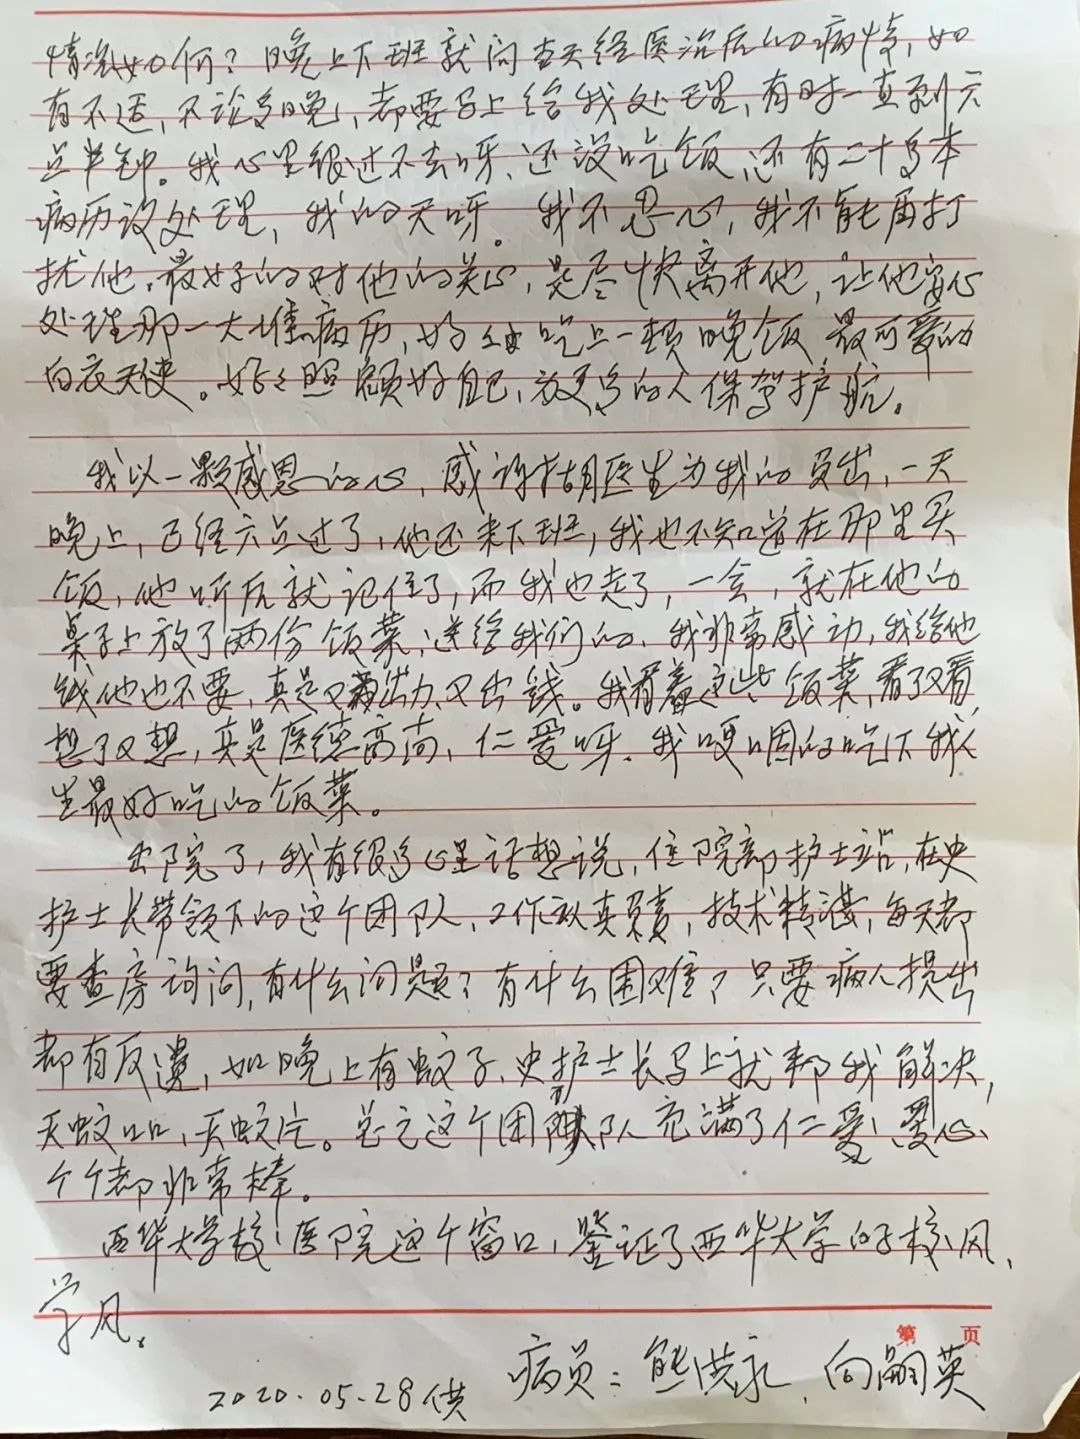 情况如何？晚上下班就问当天经医治后的病情，如
有不适，不论多晚，都要马上给我处理，有时一直到六
点半钟。我心里很过不去呀、还没吃饭、还有二十多本
病历没处理，我的天呀。我不忍心，我不能再打
扰他。最好的对他的关心，是尽快离开他，让他安心
处理那一大堆病历、好好吃上一顿晚饭，最可爱的
白衣天使。好好照顾好自己、放更多的人保驾护航。
我以一颗感恩的心，感谢胡医生为我的负出，一天
晚上，已经六点过了，他还未下班，我也不知道在那里买
饭，他听后就记住了，而我也走了，一会，就在他的
桌子上放了两份饭菜，送给我们的、我非常感动，我给他
钱他也不要，真是又出力又出钱。我看着这些饭菜，看了又看，
想了又想，真是医德高尚、仁爱呀、我哽咽的吃下我人
生最好吃的饭菜。
出院了，我有很多心里话想说，住院部护士站，在史
护士长带领下的这个团队，工作认真负责，技术精湛，每天都
要查房询问，有什么问题？有什么困难？只要病人提出
都有反遗，如晚上有蚊子、史护士长马上就帮我解决，
灭蚊，灭蚊片。总之这个团队充满了仁爱、爱心、
个个都非常棒。
西华大学校医院这个窗口，鉴证了西华大学的校风、
学风。
第 页
病员：熊洪永、向嗣英
2020.05.28供